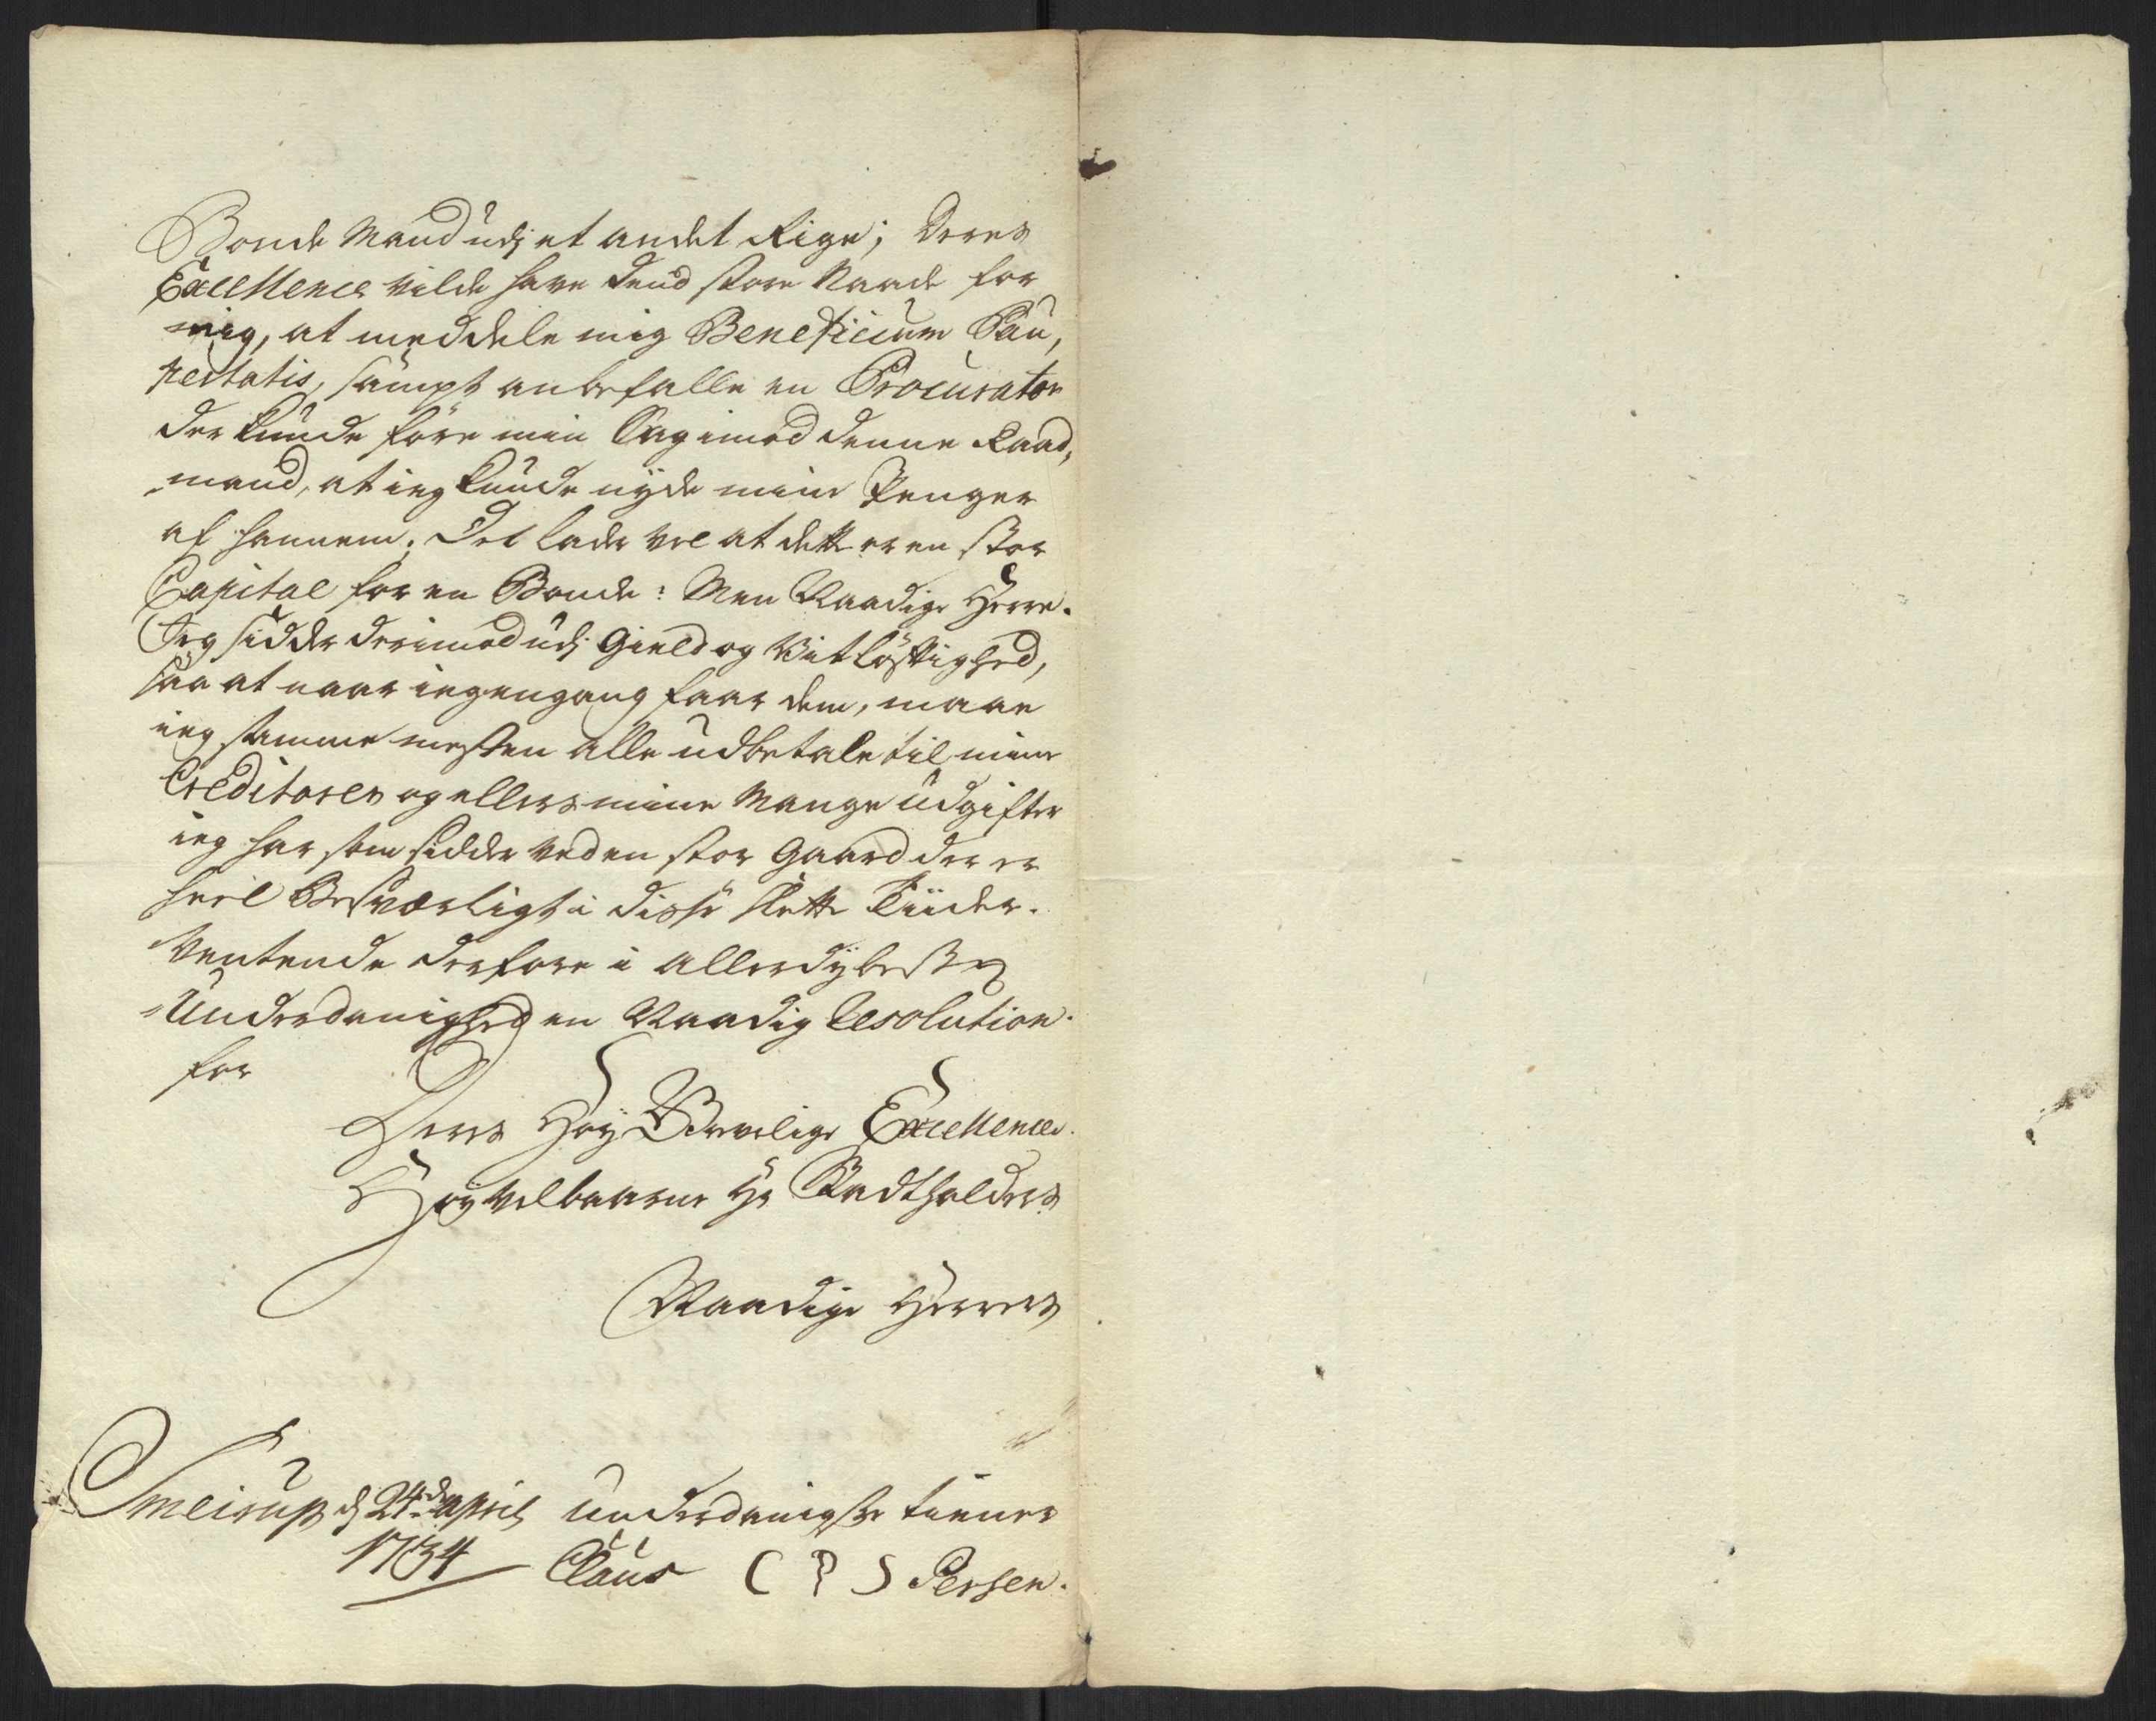 Bonde Mand udj et andet Rige; Deres
Excellence vilde have dend store Naade for
mig, at meddele mig Beneficium Pau,
pertatis, sampt anbefalle en Procurator
der kunde føre min Sag imod denne Raad,
mand, at ieg kunde nyde mine Penger
af hannem. Det lader vel at dette er en stor
Capital for en Bonde: Men Naadige Herre.
Jeg sidder derimod udj Gield og Vitløftighed,
saa at naar ieg engang faar dem, maae
ieg samme mesten alle udbetale til mine
Creditorer og ellers mine Mange udgifter
ieg har som sidder ved en stor Gaard der er
heel Besværligt i disse slette Tiider.
Ventende derfore i allerdybeste
Underdanighed en Naadig Resolution.
for
Deres Høy Grevelige Excellences
Høyvelbaarne Hr Stadtholders
Naadige Herres
Smeirup d 24de april underdanigste tienner
1734 Claus C P S Persen.